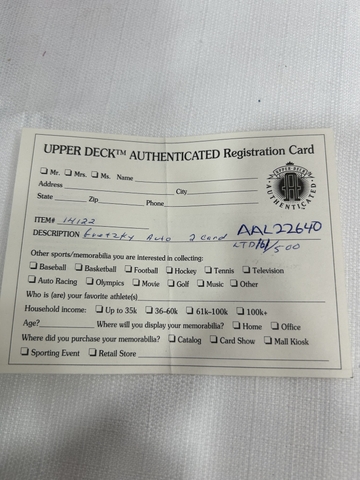 UPPER DECK™ AUTHENTICATED Registration Card
☐ Mr. ☐ Mrs. ☐ Ms. Name
Address City
State Zip Phone
UPPER DECK AUTHENTICATED
ITEM# 14122
DESCRIPTION Gretzky Auto 2 Card AAL22640
LTD 161/500
Other sports/memorabilia you are interested in collecting:
☐ Baseball ☐ Basketball ☐ Football ☐ Hockey ☐ Tennis ☐ Television
☐ Auto Racing ☐ Olympics ☐ Movie ☐ Golf ☐ Music ☐ Other
Who is (are) your favorite athlete(s)
Household income: ☐ Up to 35k ☐ 36–60k ☐ 61k–100k ☐ 100k+
Age? Where will you display your memorabilia? ☐ Home ☐ Office
Where did you purchase your memorabilia? ☐ Catalog ☐ Card Show ☐ Mall Kiosk
☐ Sporting Event ☐ Retail Store